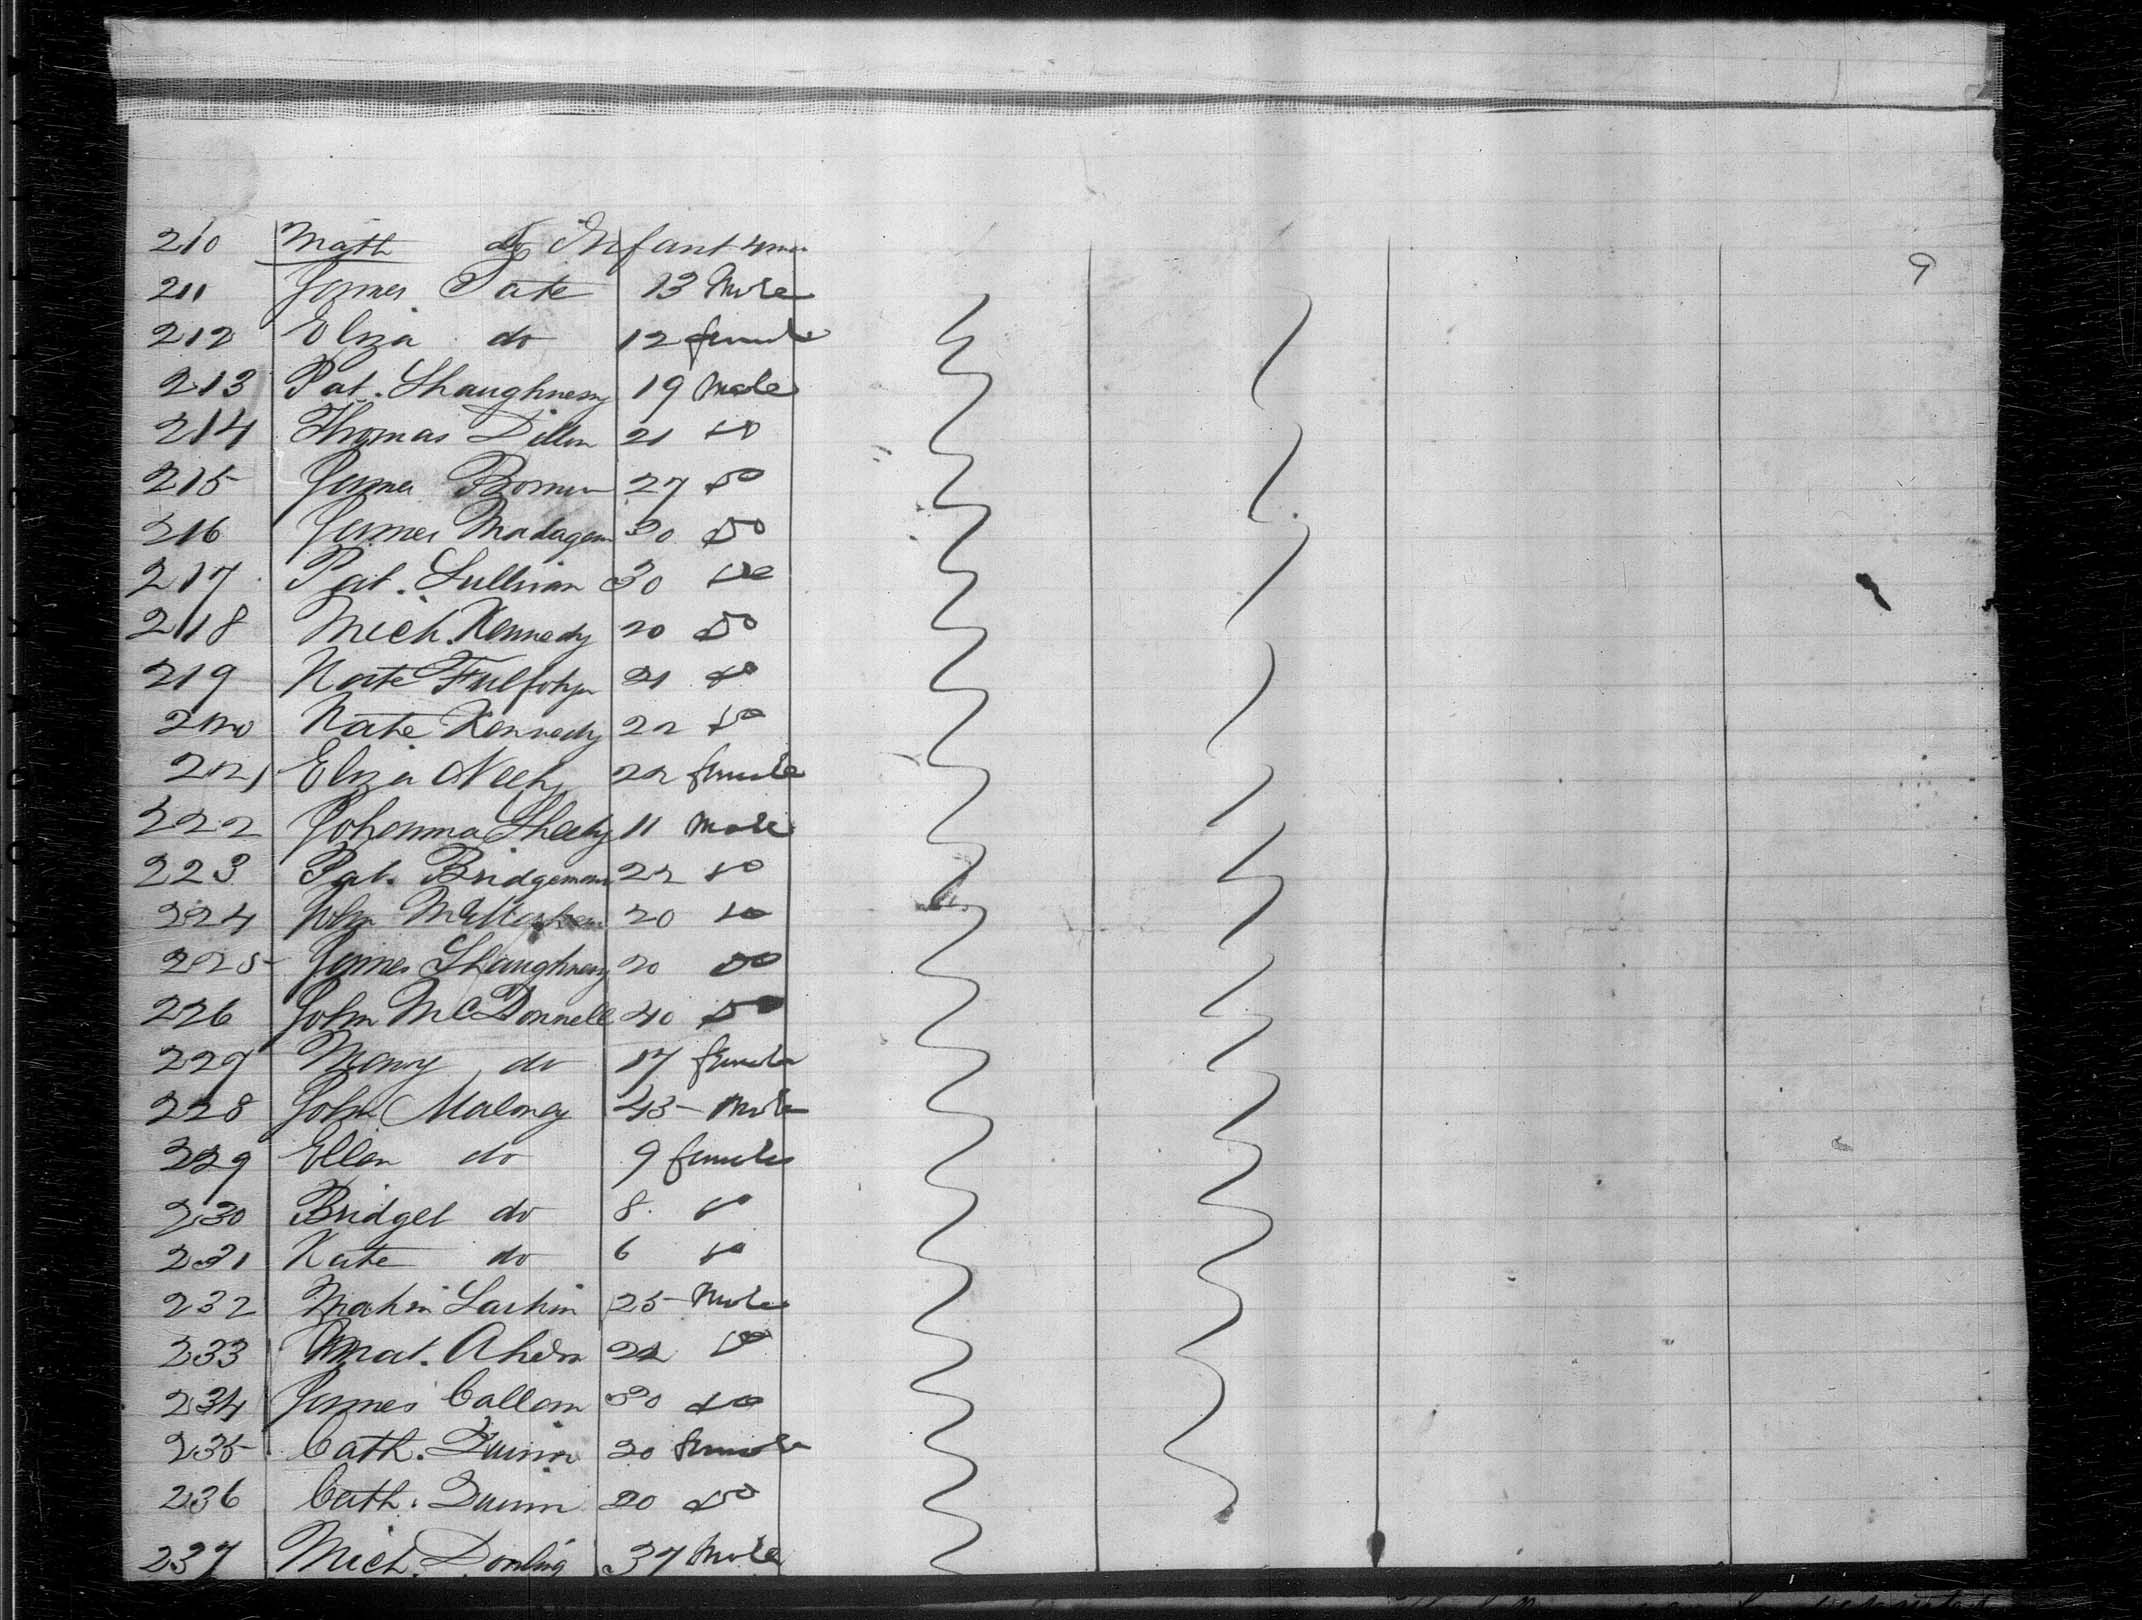 210 Math do Infant 4 mos
9
211 James Tate 13 Male
212 Eliza do 12 female
213 Pat. Shaughnessy 19 Male
214 Thomas Dillon 21 do
215 James 27 do
216 James Madagan 30 do
217 Pat. Sullivan 30 do
218 Mich. Kennedy 20 do
219 Kate 21 do
220 Kate Kennedy 22 do
221 Eliza 22 female
222 Johanna Sheehy 11 Male
223 Pat. Bridgeman 22 do
224 John 20 do
225 James Shaughnessy 20 do
226 John McDonnell 40 do
227 Mary do 17 female
228 John Maloney 43 Male
229 Ellen do 9 female
230 Bridget do 8 do
231 Kate do 6 do
232 Larkin 25 Male
233 Mat. Ahern do
234 James Callan 30 do
235 Cath. Quinn 20 female
236 Cath. Quinn 20 do
237 Mich. 37 Male